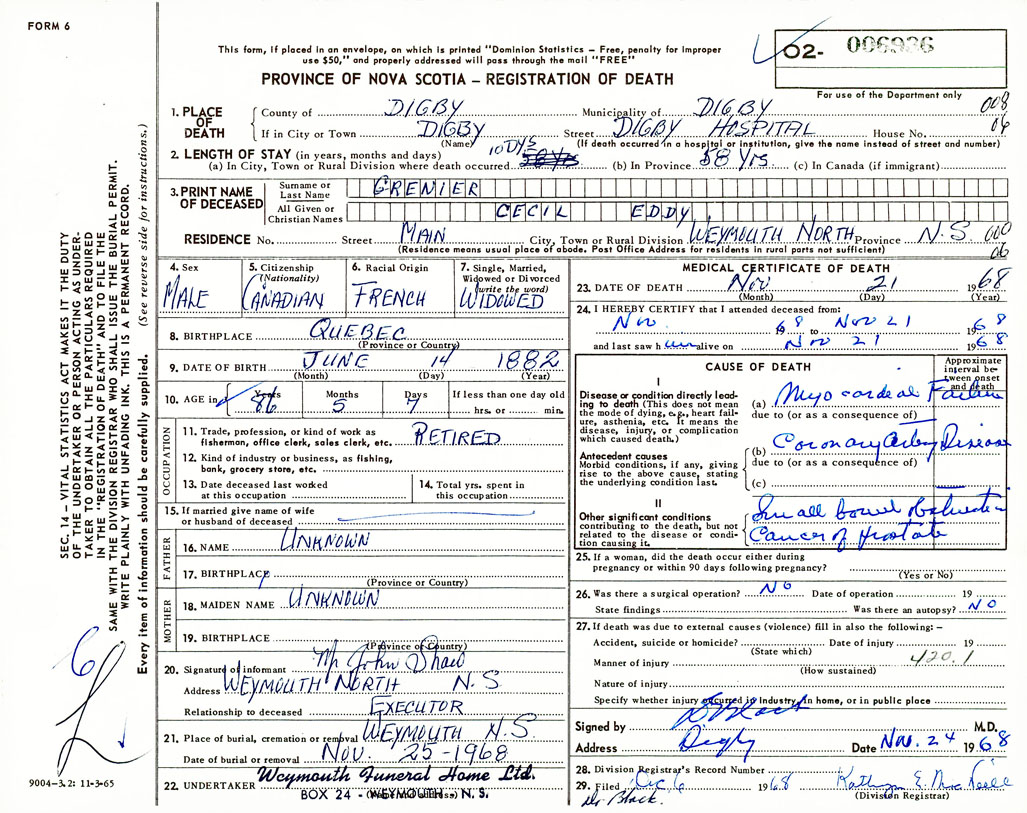 FORM 6
This form, if placed in an envelope, on which is printed "Dominion Statistics – Free, penalty for improper
use $50," and properly addressed will pass through the mail "FREE"
PROVINCE OF NOVA SCOTIA – REGISTRATION OF DEATH
O2- 006936
For use of the Department only
008
06
1. PLACE OF DEATH
County of DIGBY Municipality of DIGBY
If in City or Town DIGBY Street DIGBY HOSPITAL House No.
(Name) (If death occurred in a hospital or institution, give the name instead of street and number)
2. LENGTH OF STAY (in years, months and days)
(a) In City, Town or Rural Division where death occurred 10 DYS 58 Yrs (b) In Province 58 Yrs. (c) In Canada (if immigrant)
3. PRINT NAME OF DECEASED
Surname or Last Name GRENIER
All Given or Christian Names CECIL EDDY
RESIDENCE No. Street MAIN City, Town or Rural Division WEYMOUTH NORTH Province N.S. 000
(Residence means usual place of abode. Post Office Address for residents in rural parts not sufficient) 06
4. Sex MALE
5. Citizenship (Nationality) CANADIAN
6. Racial Origin FRENCH
7. Single, Married, Widowed or Divorced (write the word) WIDOWED
8. BIRTHPLACE QUEBEC
(Province or Country)
9. DATE OF BIRTH JUNE 14 1882
(Month) (Day) (Year)
10. AGE in Years 86 Months 5 Days 7 If less than one day old
hrs. or min.
OCCUPATION
11. Trade, profession, or kind of work as
fisherman, office clerk, sales clerk, etc. RETIRED
12. Kind of industry or business, as fishing,
bank, grocery store, etc.
13. Date deceased last worked
at this occupation
14. Total yrs. spent in
this occupation
15. If married give name of wife
or husband of deceased
FATHER
16. NAME UNKNOWN
17. BIRTHPLACE
(Province or Country)
MOTHER
18. MAIDEN NAME UNKNOWN
19. BIRTHPLACE
(Province or Country)
20. Signature of informant Mr John Shaw
Address WEYMOUTH NORTH N.S
Relationship to deceased EXECUTOR
21. Place of burial, cremation or removal WEYMOUTH N.S.
Date of burial or removal NOV. 25-1968
22. UNDERTAKER Weymouth Funeral Home Ltd.
(Name and address)
BOX 24 - WEYMOUTH - N. S.
MEDICAL CERTIFICATE OF DEATH
23. DATE OF DEATH Nov 21 1968
(Month) (Day) (Year)
24. I HEREBY CERTIFY that I attended deceased from:
Nov 1968 to Nov 21 1968
and last saw him alive on Nov 21 1968
CAUSE OF DEATH
Approximate interval between onset and death
I
Disease or condition directly leading to death (This does not mean
the mode of dying, e.g., heart failure, asthenia, etc. It means the
disease, injury, or complication
which caused death.)
(a) Myocardeal Failure
due to (or as a consequence of)
Antecedent causes
Morbid conditions, if any, giving
rise to the above cause, stating
the underlying condition last.
(b) Coronary Artery Disease
due to (or as a consequence of)
(c)
II
Other significant conditions
contributing to the death, but not
related to the disease or condition causing it.
Small bowel obstruction
Cancer of Prostate
25. If a woman, did the death occur either during
pregnancy or within 90 days following pregnancy?
(Yes or No)
26. Was there a surgical operation? No Date of operation 19
State findings Was there an autopsy? No
27. If death was due to external causes (violence) fill in also the following: –
Accident, suicide or homicide? Date of injury 19
(State which)
Manner of injury 420.1
(How sustained)
Nature of injury
Specify whether injury occurred in Industry, in home, or in public place
Signed by Black M.D.
Address Digby Date Nov. 24 1968
28. Division Registrar's Record Number
29. Filed Dec 6 1968 Kathryn E. MacNeill
(Division Registrar)
Dr Black.
SEC. 14 – VITAL STATISTICS ACT MAKES IT THE DUTY
OF THE UNDERTAKER OR PERSON ACTING AS UNDERTAKER TO OBTAIN ALL THE PARTICULARS REQUIRED
IN THE "REGISTRATION OF DEATH" AND TO FILE THE
SAME WITH THE DIVISION REGISTRAR WHO SHALL ISSUE THE BURIAL PERMIT.
WRITE PLAINLY WITH UNFADING INK. THIS IS A PERMANENT RECORD.
Every item of information should be carefully supplied. (See reverse side for instructions.)
9004-3.2: 11-3-65